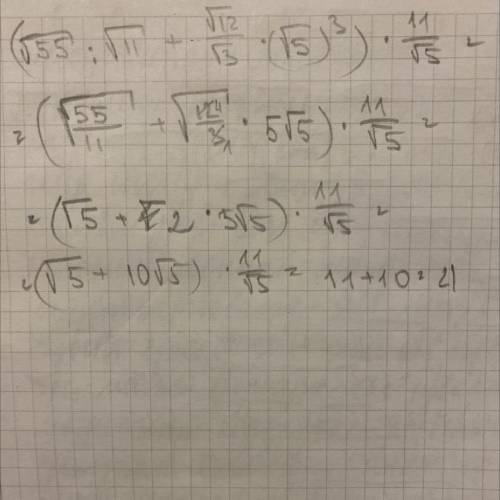 (√55 : √11 + √12/√3 · (√5)³) · 11/√5 =
= (√(55/11) + √(12/3) · 5√5) · 11/√5 =
= (√5 + 2 · 5√5) · 11/√5 =
= (√5 + 10√5) · 11/√5 = 11 + 10 = 21